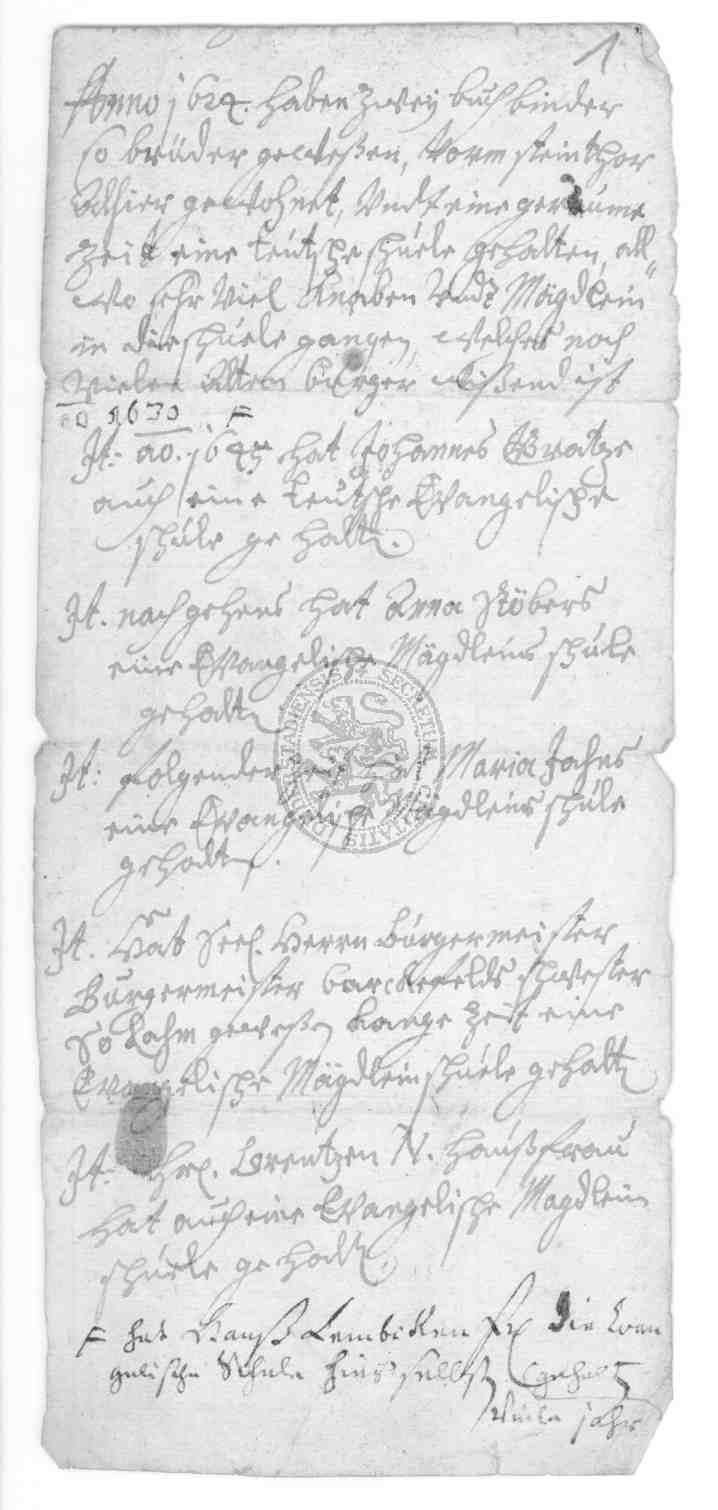 1
Anno 1624. haben zweÿ buchbinder
so brüder geweßen, Vorm steinthor
alhier gewohnet, Vndt eine geraume
Zeit eine teütsche schuele gehalten, all
wo sehr Viel Knaben Vndt Mägdlein
in die schuele gangen, welches noch
Vielen alten bürger wißend ist
ao 1630 F
It: ao. 1645 hat Johannes
auch eine teutsche Evangelische
schule gehaltn.
It. nachgehens hat Anna Stöbers
eine Evangelische Mägdleins schule
gehaltn
It: folgender Zeit hat Maria Jahns
eine Evangelische Mägdleins schule
gehaltn.
It. Hat Seel. Herrn bürgermeister
Bürgermeister barckefelds schwester
So Lahm geweßen Lange Zeit eine
Evangelische Mägdlein schuele gehaltn
It: Lorentzen N. haußfrau
hat auch eine Evangelische Magdlein
schuele gehaltn.
F hat Hanß Lembcken die Evan
gelische Schule hierselbst gehaltn
Viele jahr
SECRETUM CIVITATIS